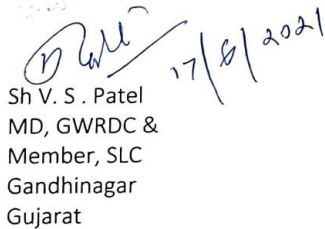 17/8/2021
Sh V. S . Patel
MD, GWRDC &
Member, SLC
Gandhinagar
Gujarat